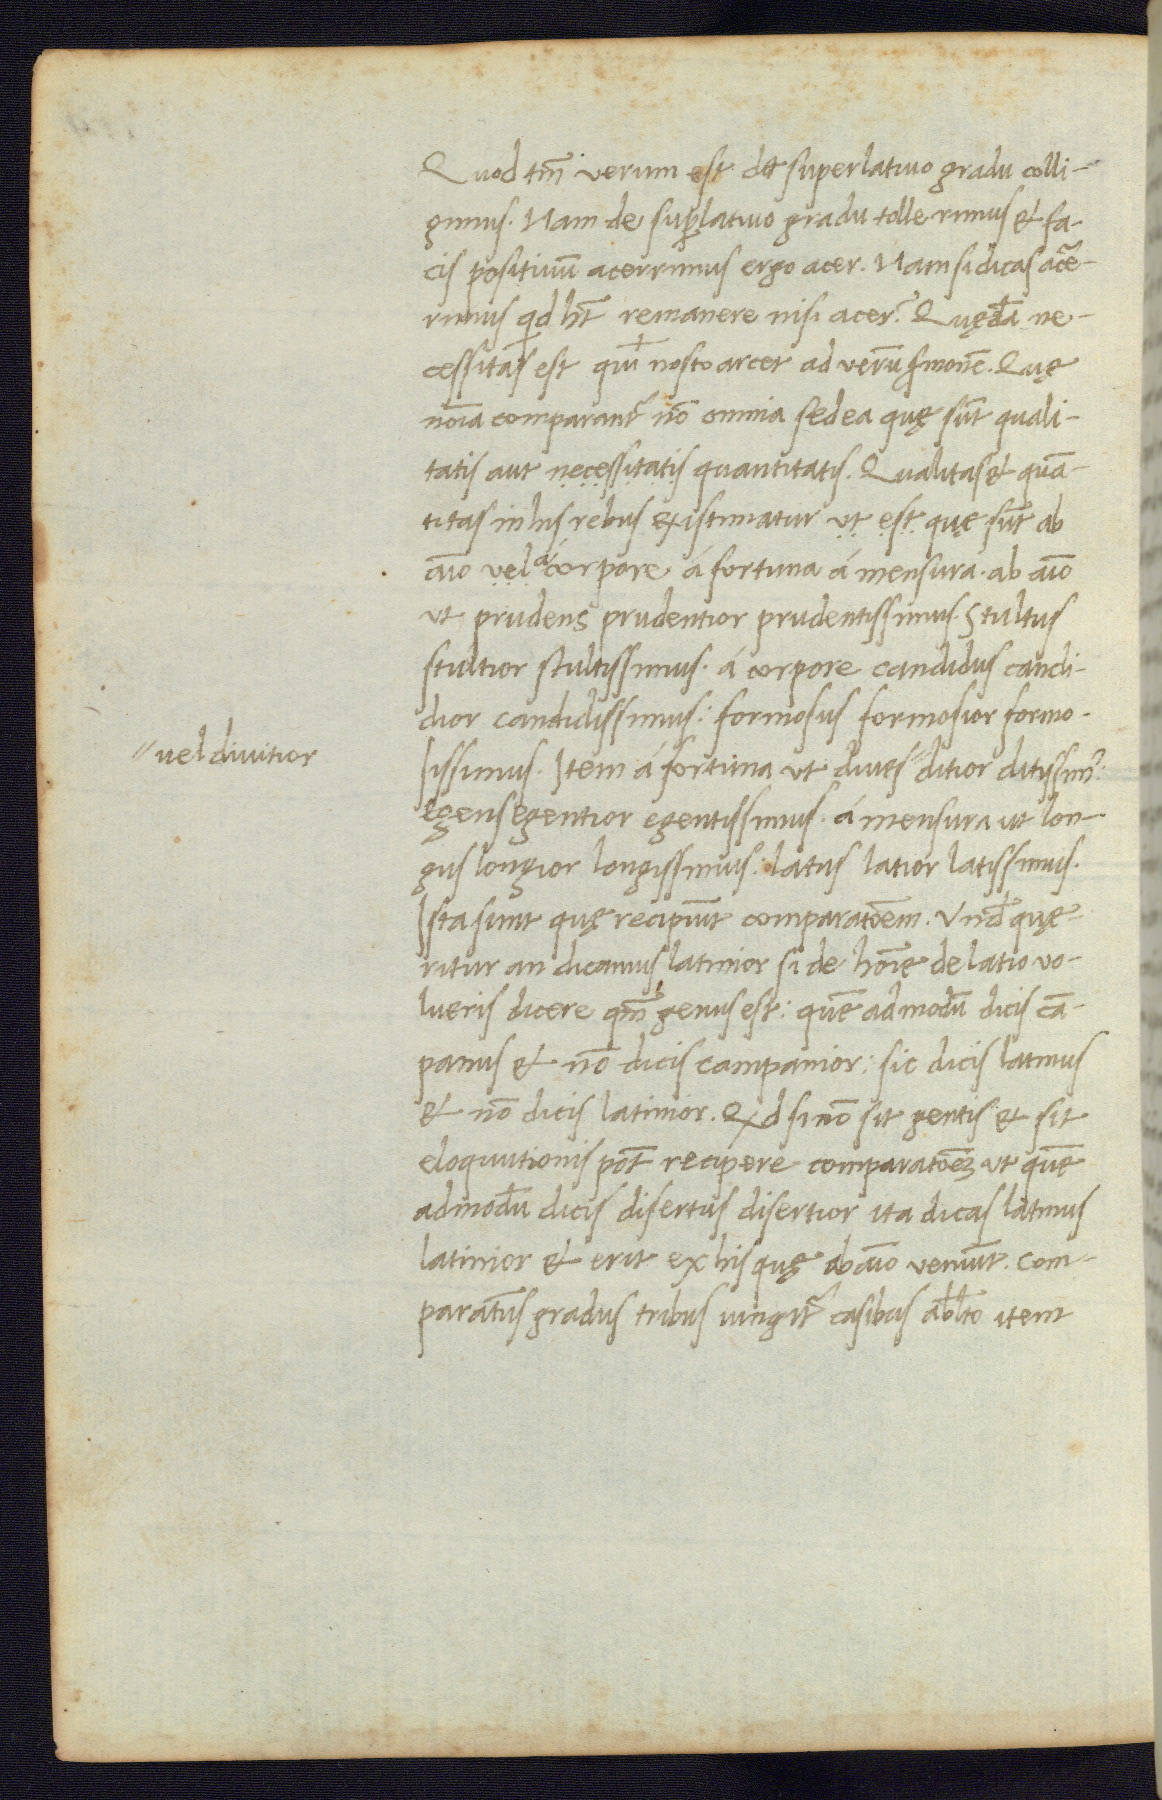 Quod tm̄ verum est de superlatiuo gradu colli-
gimus. Nam de suꝑlatiuo gradu tolle rimus & fa-
cis positiuū acerrimus ergo acer. Nam si dicas ace-
rimus qd hт̄ remanere nisi acer? Quędā ne-
cessitas est qui nos to arcet ad verū sermonē. Quę
noīa comparant᷑ nō omnia sed ea quę sūt quali-
tatis aut necessitatis quantitatis. Qualitas & quā-
titas in his rebus existimatur ut est quę sūt ab
aīo vel á corpore á fortuna á mensura. ab aīo
ut prudens prudentior prudentissimus. Stultus
stultior stultissimus. á corpore candidus candi-
dior candidissimus: formosus formosior formo-
sissimus. Item á fortuna ut diues〃ditior ditissim᷒.
〃uel diuitior
egens egentior egentissimus. á mensura ut lon-
gus longior longissimus: latus latior latissimus.
Ista sunt quę recipiūt comparatōem. Vnde quę-
ritur an dicamus latinior si de hoīe de latio vo-
lueris dicere qm̄ genus est: quē admodū dicis cā-
panus & nō dicis campanior: sic dicis latinus
& nō dicis latinior. Qd si nō sit gentis & sit
eloquutionis pōt recipere comparatōeꝫ ut quē
admodū dicis disertus disertior ita dicas latinus
latinior & erit ex his quę ab aīo veniūt. Com-
paratiūs gradus tribus iungit᷑ casibus ablto item